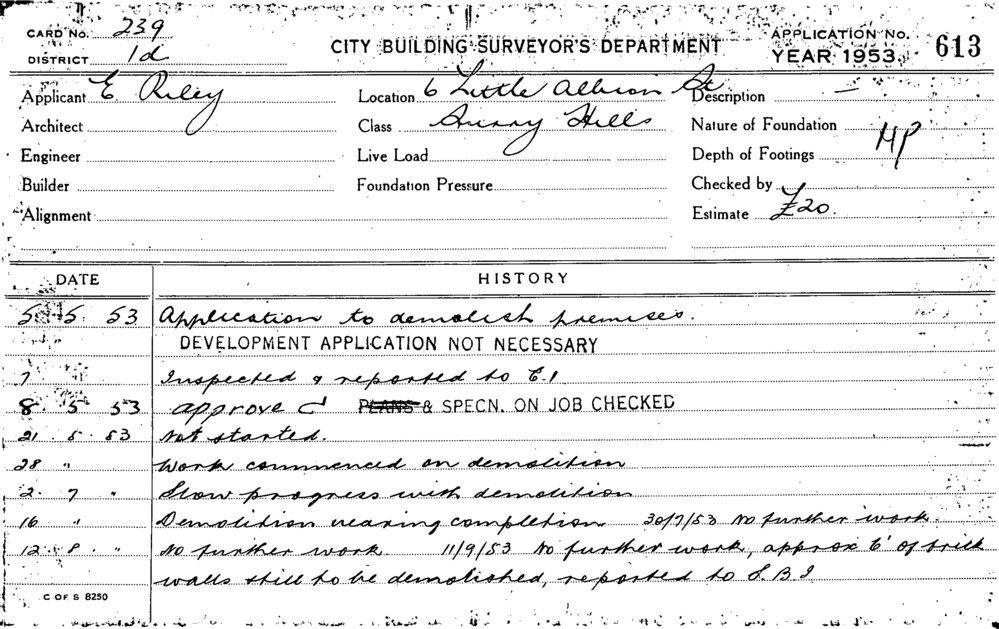 CARD No. 239
DISTRICT 1d
CITY BUILDING SURVEYOR'S DEPARTMENT
APPLICATION No. 613
YEAR 1953
Applicant E Riley
Location 6 Little Albion St
Description —
Architect
Class Surry Hills
Nature of Foundation
MP
Engineer
Live Load
Depth of Footings
Builder
Foundation Pressure
Checked by
Alignment
Estimate £20.
DATE HISTORY
5 5 53 Application to demolish premises.
DEVELOPMENT APPLICATION NOT NECESSARY
7 Inspected & reported to C.I
8 5 53 approved PLANS & SPECN. ON JOB CHECKED
21 5 53 Not started.
28 " Work commenced on demolition
2 7 " Slow progress with demolition
16 " Demolition nearing completion 30/7/53 No further work.
12 8 " No further work 11/9/53 No further work, approx 6' of brick
walls still to be demolished, reported to S.B.I
C OF S 8250